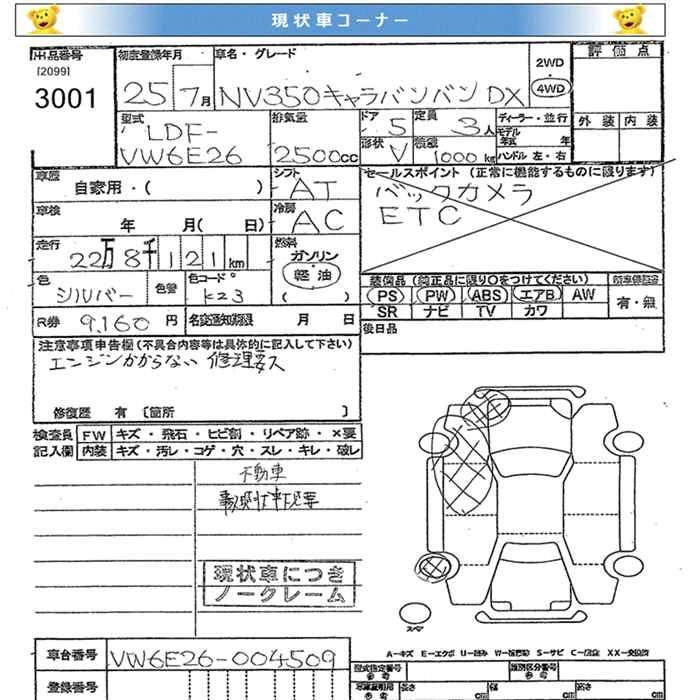 現状車コーナー
出品番号
[2099]
3001
初度登録年月
25 7月
車名・グレード
NV350キャラバンバン DX
2WD
4WD
評価点
外装 内装
型式
LDF-
VW6E26
排気量
2500cc
ドア
5
定員
3人
形状
V
積載
1000kg
ディーラー・並行
モデル
年式 年
ハンドル 左・右
車歴
自家用・( )
シフト
AT
車検
年 月( 日)
冷房
AC
セールスポイント (正常に機能するものに限ります)
バックカメラ
ETC
走行
22万8千121km
燃料
ガソリン
軽油
( )
色
シルバー
色替
色コード
K23
装備品 (純正品に限り○をつけてください)
PS PW ABS エアB AW
SR ナビ TV カワ
有・無
R券 9,160円
名変通知期限 月 日
後日品
注意事項申告欄(不具合内容等は具体的に記入して下さい)
エンジンかからない 修理要ス
修復歴 有 〔箇所 〕
検査員
記入欄
FW キズ・飛石・ヒビ割・リペア跡・×要
内装 キズ・汚レ・コゲ・穴・スレ・キレ・破レ
不動車
現状車につき
ノークレーム
スペア
A=キズ E=エクボ U=凹み W=補修跡 S=サビ C=腐食 XX=交換済
車台番号 VW6E26-004509
登録番号
型式指定番号
参考
類別区分番号
参考
車庫証明用
参考
長さ cm
幅 cm
高さ cm